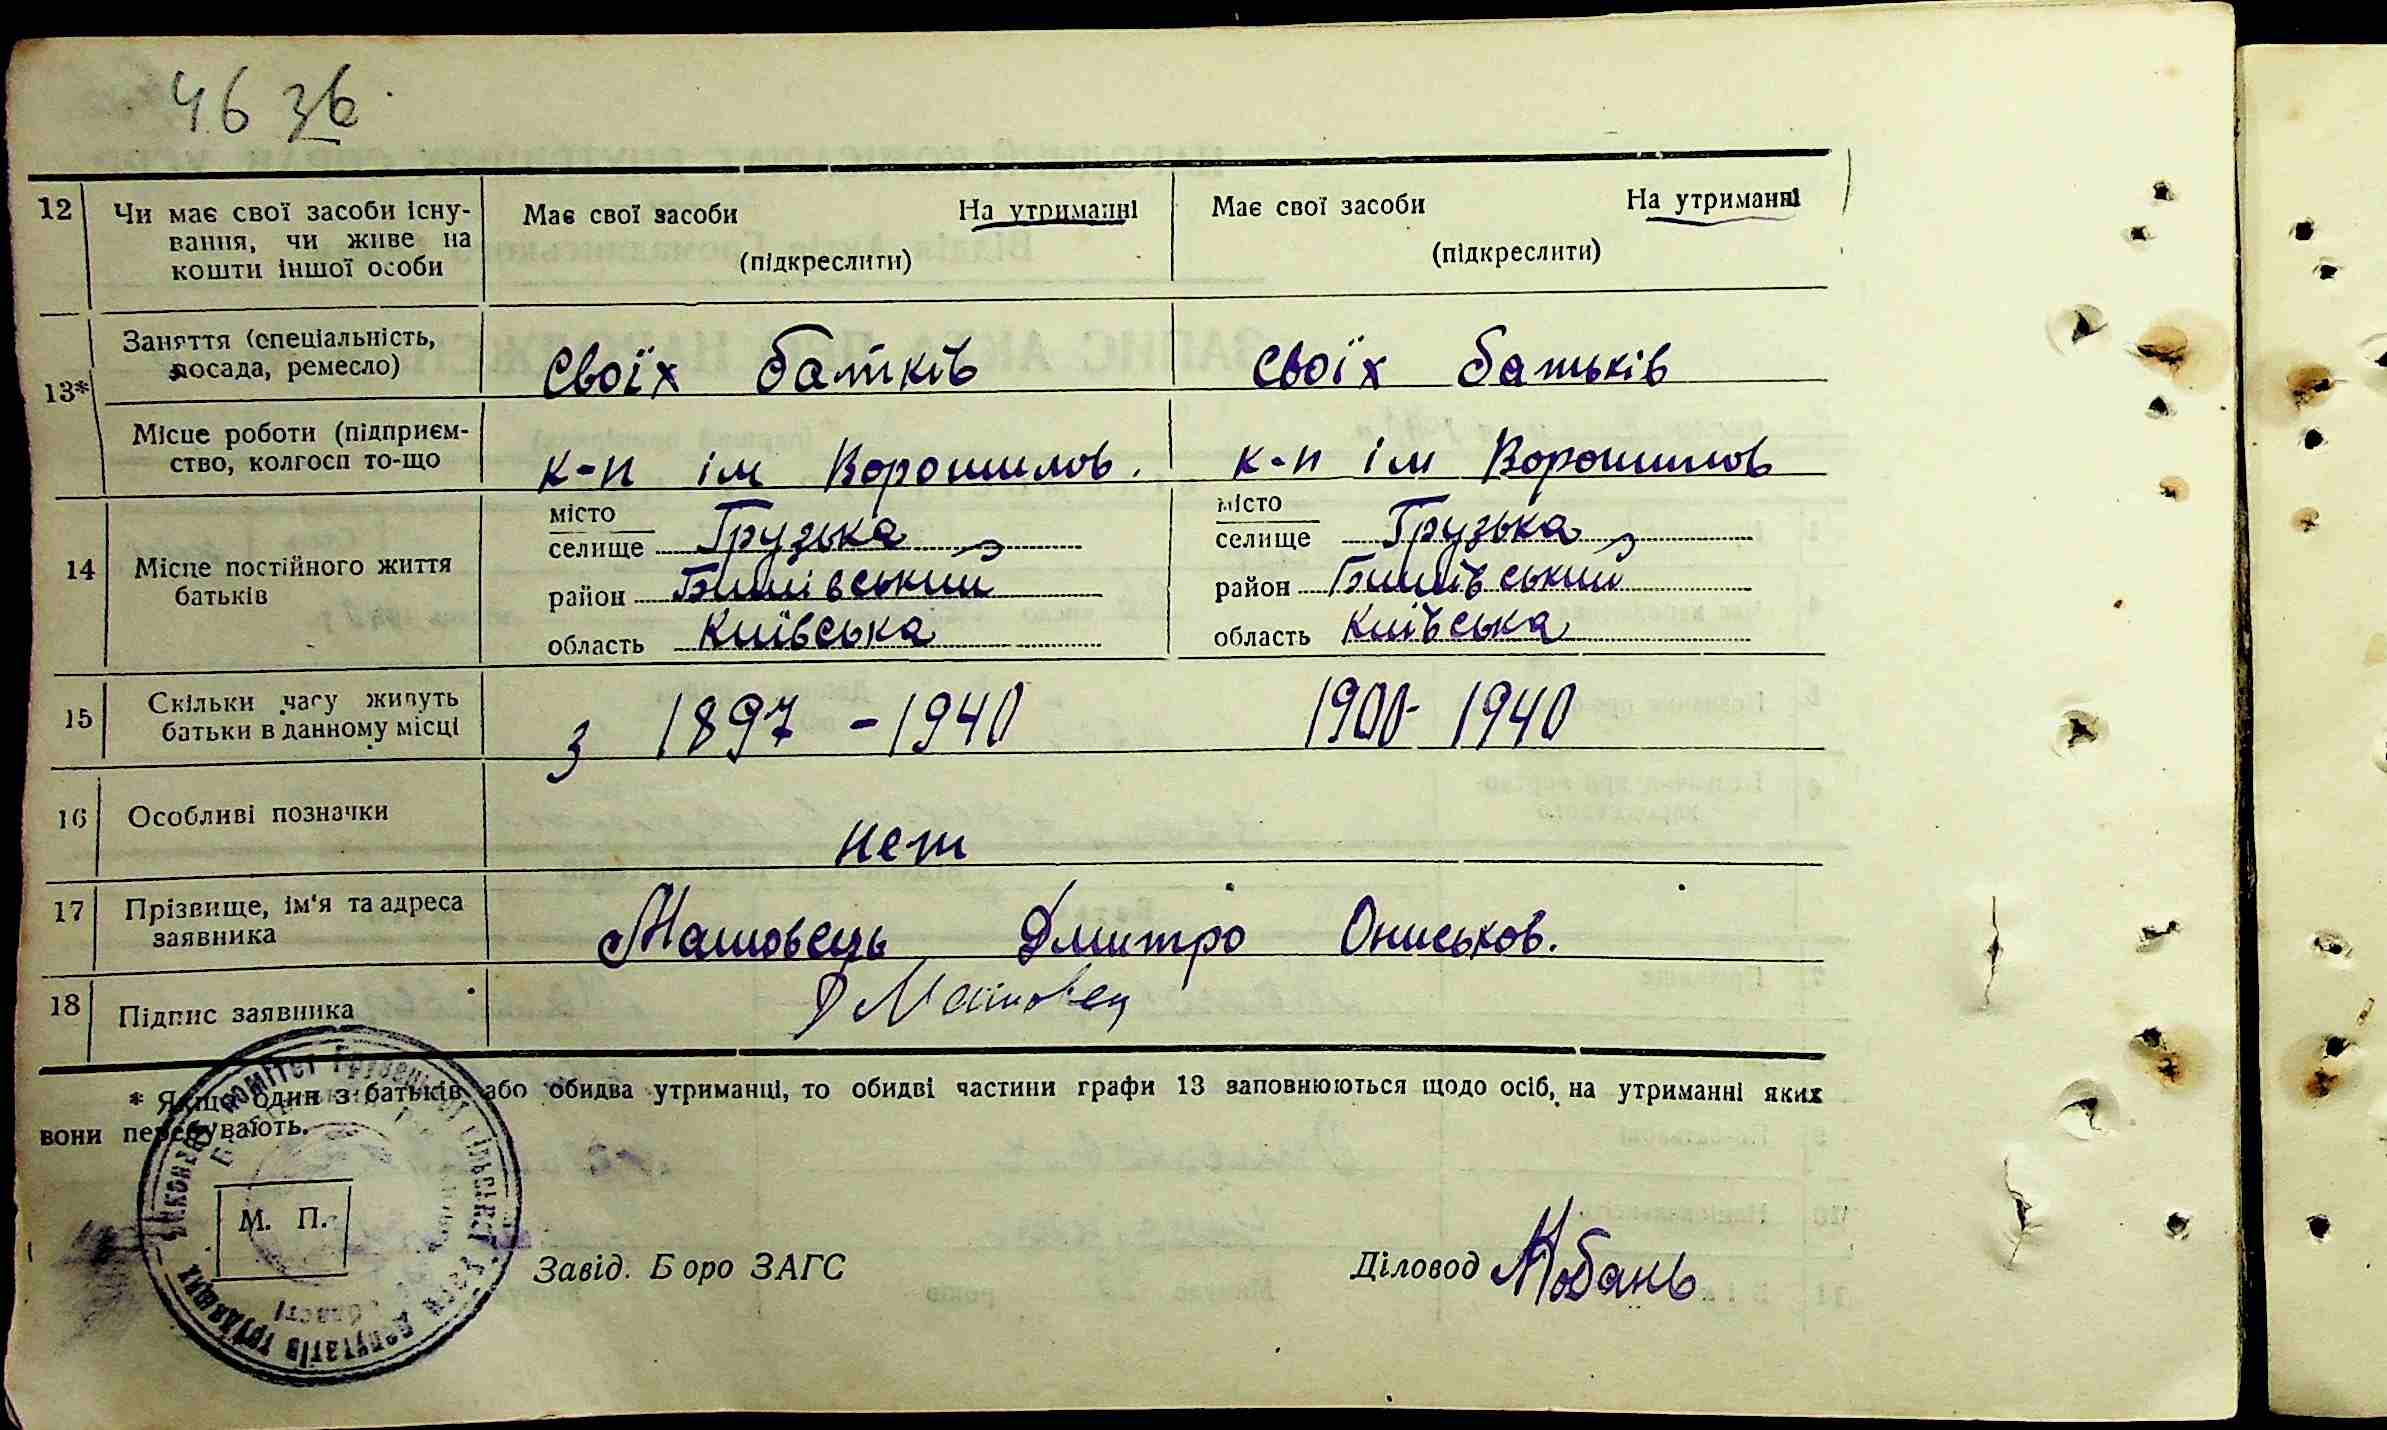 46 зв.
12 Чи має свої засоби існу- Має свої засоби На утриманні Має свої засоби На утриманні
вання, чи живе на
кошти іншої особи (підкреслити) (підкреслити)
13* Заняття (спеціальність,
посада, ремесло) своїх батків своїх батьків
Місце роботи (підприєм-
ство, колгосп то-що к-п ім Ворошилов. к-п ім Ворошилов
14 Місце постійного життя
батьків
місто
селище Грузька місто
селище Грузька
район Бишівський район Бишівський
область Київська область Київська
15 Скільки часу живуть
батьки в данному місці з 1897 - 1940 1900- 1940
16 Особливі позначки нет
17 Прізвище, ім'я та адреса
заявника Машовець Дмитро Ониськов.
18 Підпис заявника Д Машовец
* Якщо один з батьків або обидва утриманці, то обидві частини графи 13 заповнюються щодо осіб, на утриманні яких
вони перебувають.
М. П.
Завід. Б оро ЗАГС Діловод